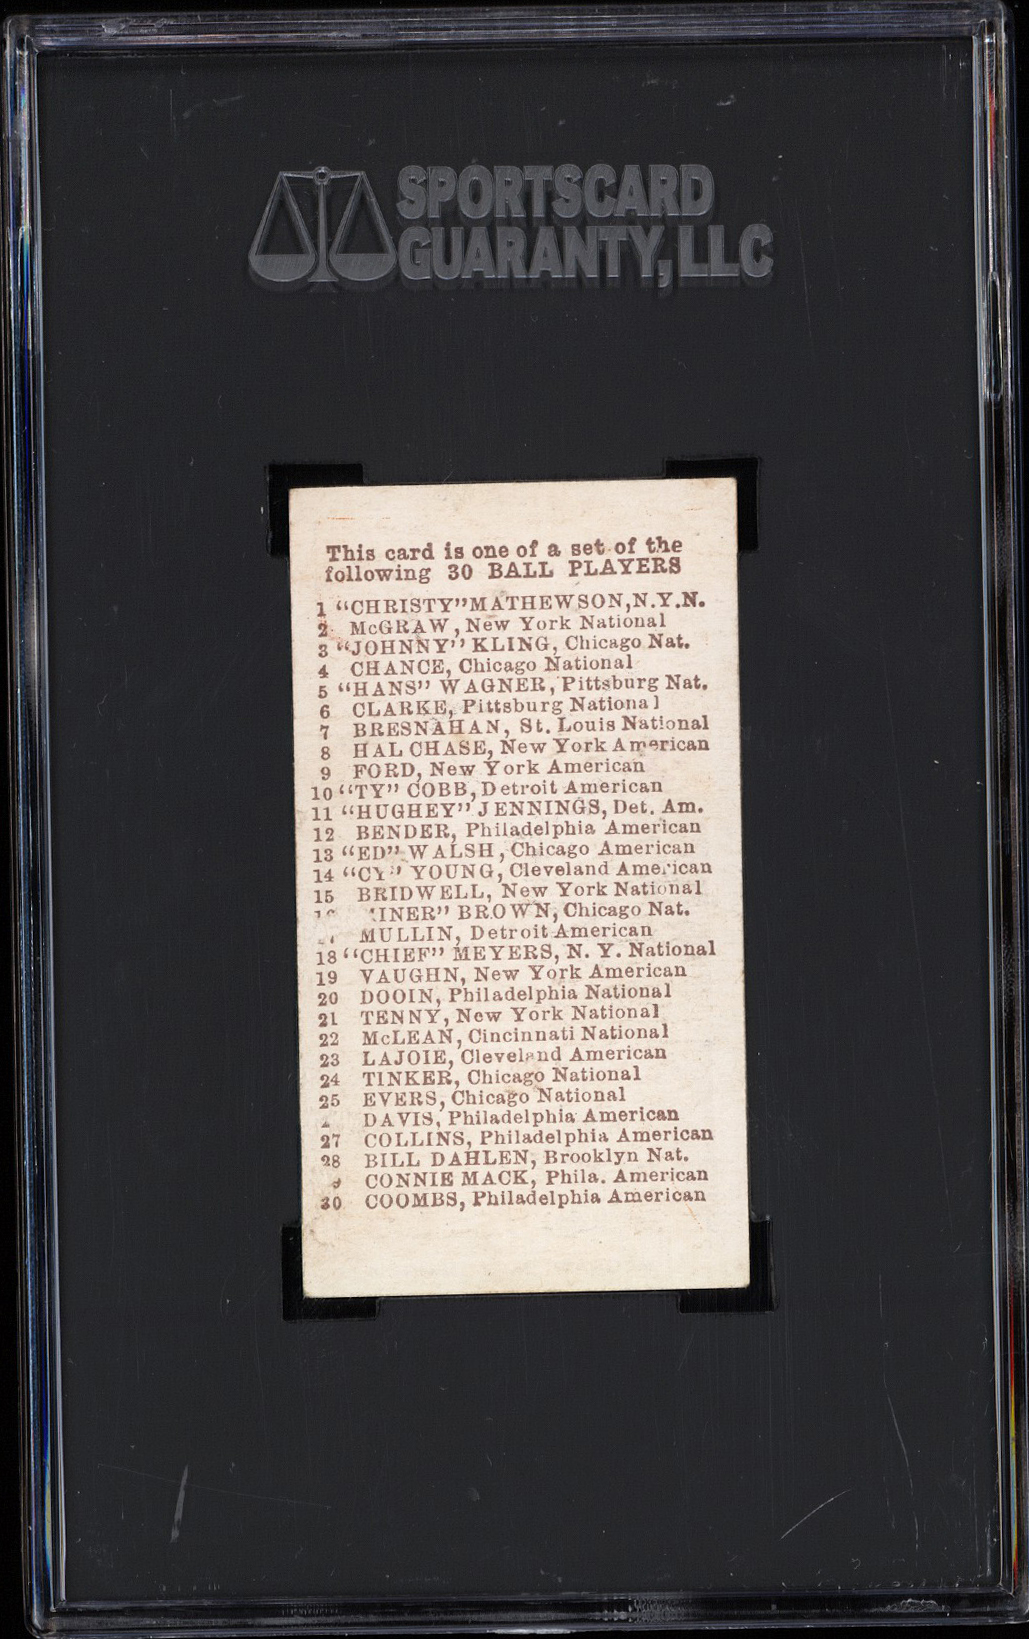 SPORTSCARD
GUARANTY, LLC
This card is one of a set of the
following 30 BALL PLAYERS
1 "CHRISTY" MATHEWSON, N.Y.N.
2 McGRAW, New York National
3 "JOHNNY" KLING, Chicago Nat.
4 CHANCE, Chicago National
5 "HANS" WAGNER, Pittsburg Nat.
6 CLARKE, Pittsburg National
7 BRESNAHAN, St. Louis National
8 HAL CHASE, New York American
9 FORD, New York American
10 "TY" COBB, Detroit American
11 "HUGHEY" JENNINGS, Det. Am.
12 BENDER, Philadelphia American
13 "ED" WALSH, Chicago American
14 "CY" YOUNG, Cleveland American
15 BRIDWELL, New York National
BROWN, Chicago Nat.
MULLIN, Detroit American
18 "CHIEF" MEYERS, N. Y. National
19 VAUGHN, New York American
20 DOOIN, Philadelphia National
21 TENNY, New York National
22 McLEAN, Cincinnati National
23 LAJOIE, Cleveland American
24 TINKER, Chicago National
25 EVERS, Chicago National
DAVIS, Philadelphia American
27 COLLINS, Philadelphia American
28 BILL DAHLEN, Brooklyn Nat.
CONNIE MACK, Phila. American
30 COOMBS, Philadelphia American